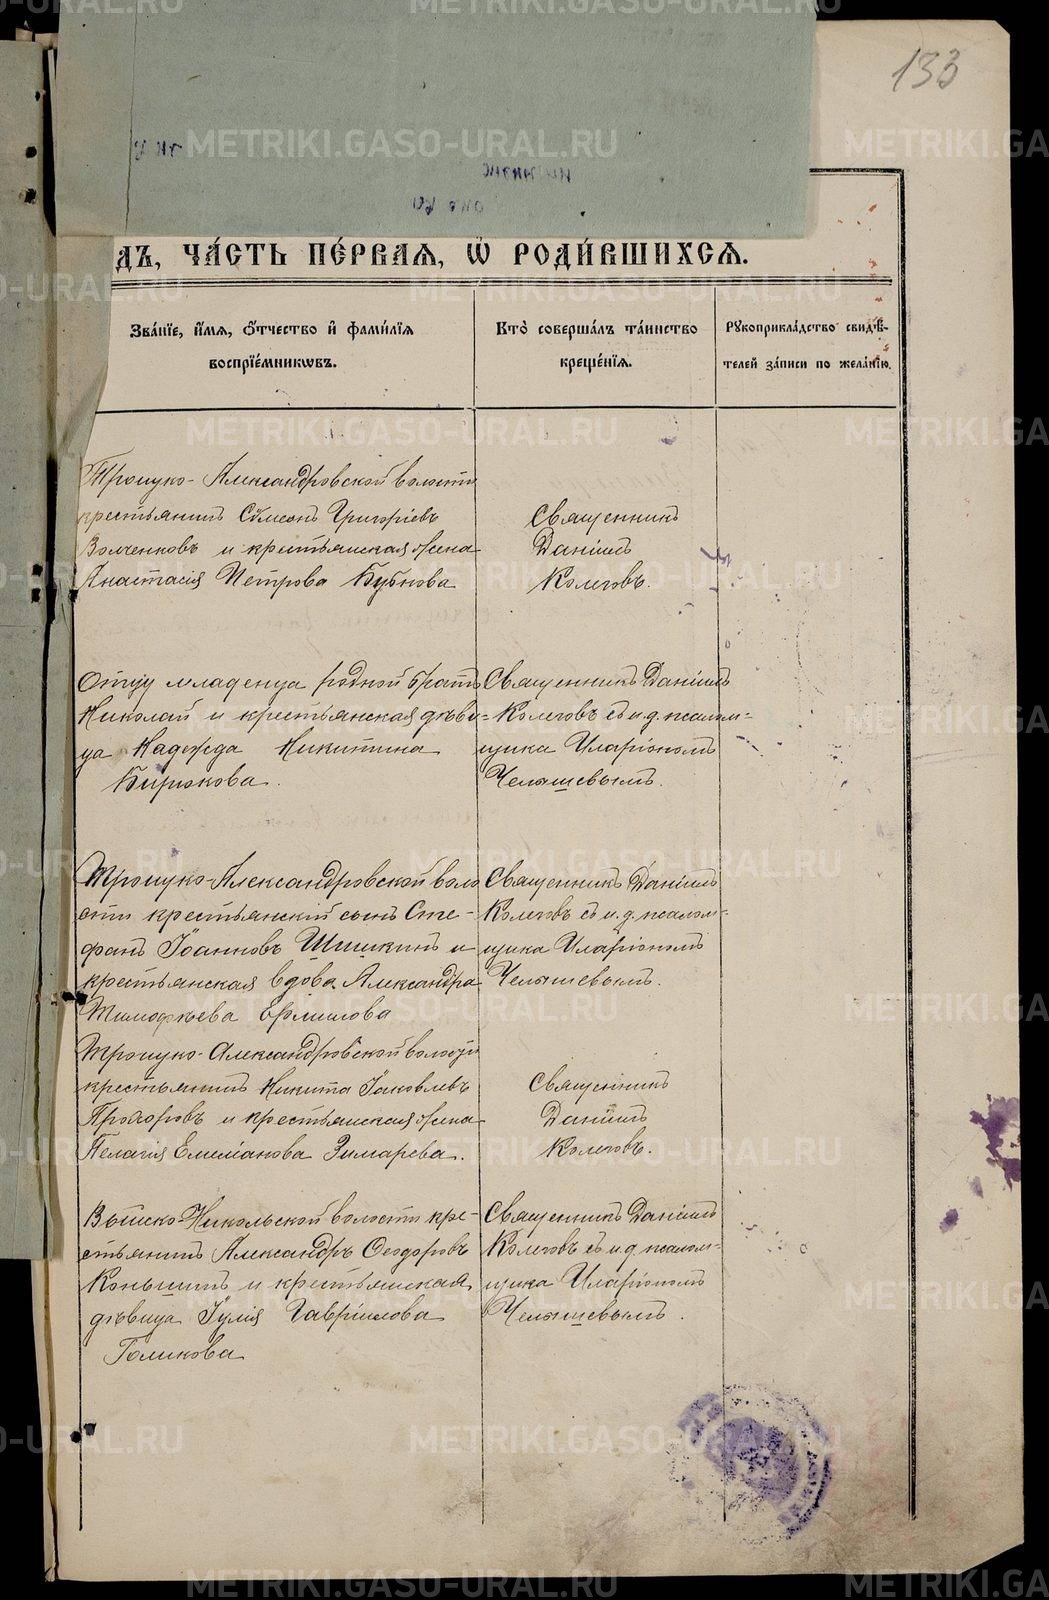 133
дъ, ча́сть пе́рвая, ѽ роди́вшихся.
Зва́нїе, и҆́мя, ѻ҆́тчество и҆ фами́лїя
воспрїе́мникѡвъ.
Кто̀ соверша́лъ та́инство
креще́нїя.
Рꙋкоприкла́дство свидѣ́-
телей за́писи по жела́нїю.
Троицко-Александровской волости
крестьянинъ Сѵмеонъ Григоріевъ
Волченковъ и крестьянская жена
Анастасія Петрова Бубнова
Священникъ
Даніилъ
Колеговъ.
Отцу младенца родной братъ
Николай и крестьянская дѣви-
ца Надежда Никитина
Бирюкова.
Священникъ Даніилъ
Колеговъ съ и.д. псалом-
щика Иларіономъ
Челышевымъ.
Троицко-Александровской воло
сти крестьянскій сынъ Сте-
фанъ Іоанновъ Шишкинъ и
крестьянская вдова Александра
Тимофѣева Ермилова
Священникъ Даніилъ
Колеговъ съ и.д. псалом-
щика Иларіономъ
Челышевымъ.
Троицко-Александровской волости
крестьянинъ Никита Іаковлевъ
Прохоровъ и крестьянская жена
Пелагія Емеліанова Зимарева.
Священникъ
Даніилъ
Колеговъ.
Выйско-Никольской волости кре-
стьянинъ Александръ Ѳеодоровъ
Коньшинъ и крестьянская
дѣвица Іулія Гавріилова
Голикова
Священникъ Даніилъ
Колеговъ съ и.д. псалом-
щика Иларіономъ
Челышевымъ.
METRIKI.GASO-URAL.RU